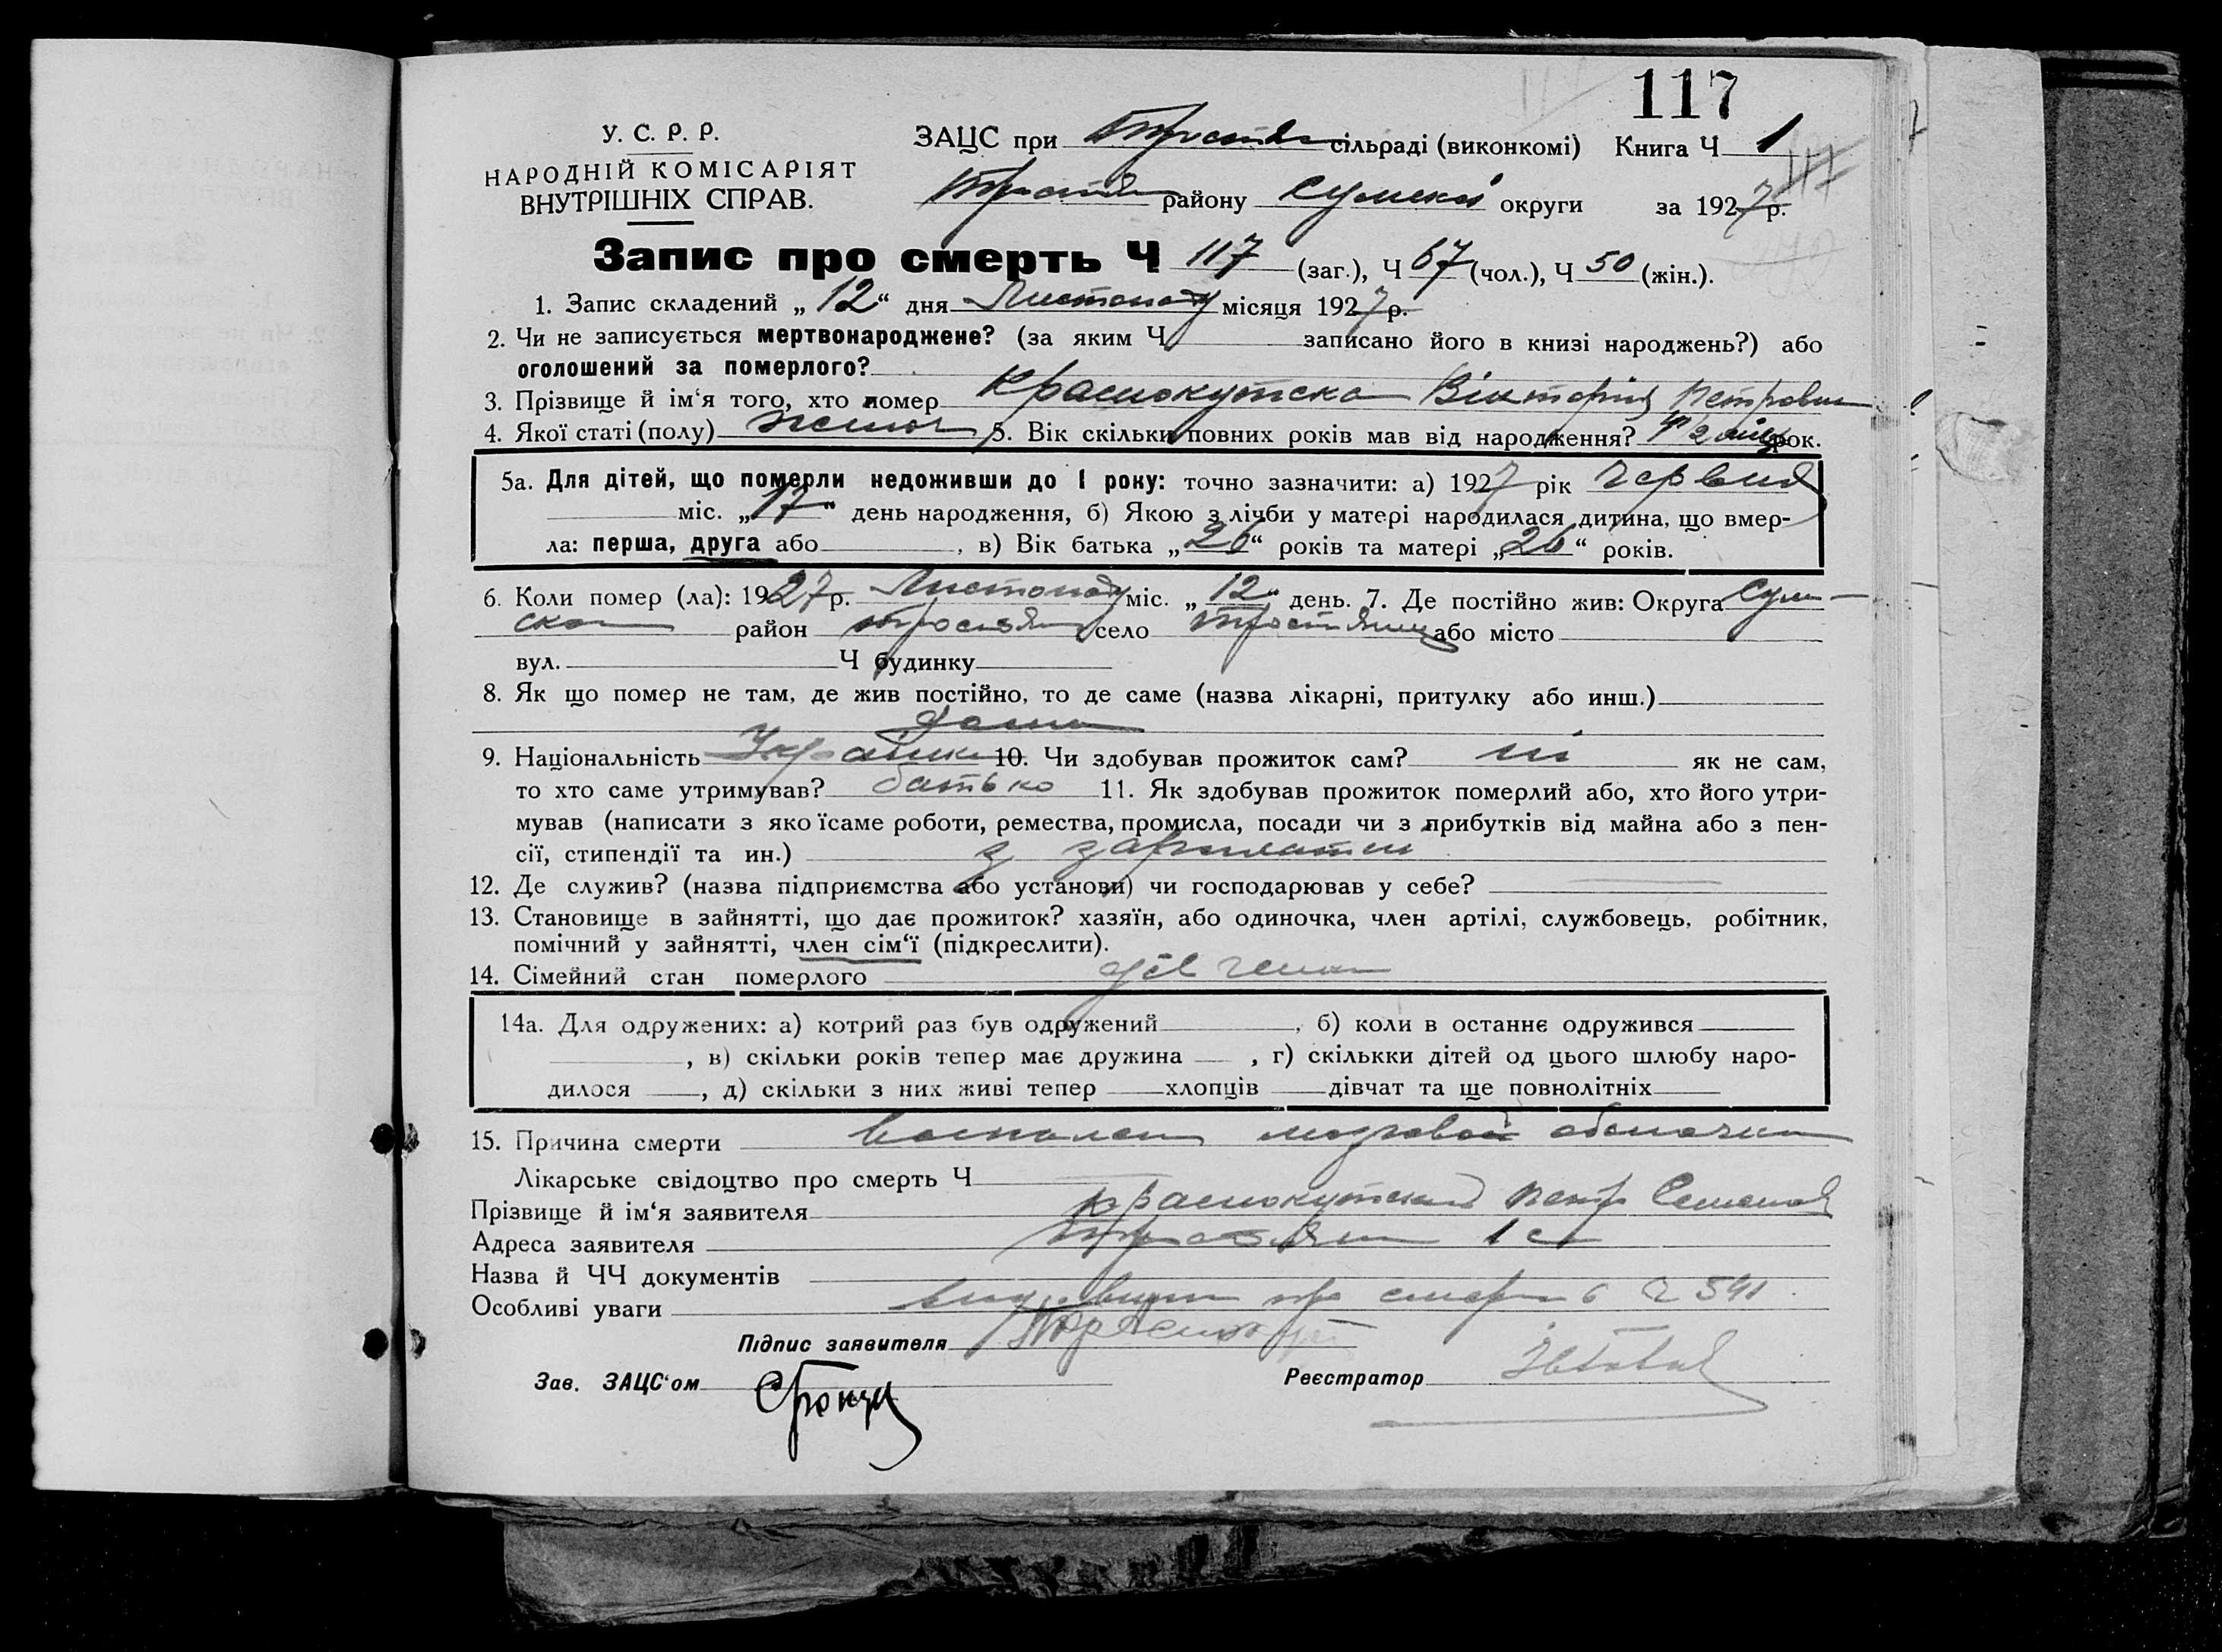 117
У. С. Р. Р.
НАРОДНІЙ КОМІСАРІЯТ
ВНУТРІШНІХ СПРАВ.
ЗАЦС при Тростян сільраді (виконкомі) Книга Ч 1
Тростян району Сумской округи за 1927 р.
Запис про смерть Ч 117 (заг.), Ч 67 (чол.), Ч 50 (жін.).
1. Запис складений „12“ дня Листопаду місяця 1927 р.
2. Чи не записується мертвонароджене? (за яким Ч записано його в книзі народжень?) або
оголошений за померлого?
3. Прізвище й ім‘я того, хто помер Краснокутска Вікторія Петровна
4. Якої статі (полу) жіноч 5. Вік скільки повних років мав від народження? рок.
5а. Для дітей, що померли недоживши до 1 року: точно зазначити: а) 1927 рік Червня
міс. „17“ день народження, б) Якою з лічби у матері народилася дитина, що вмер-
ла: перша, друга або , в) Вік батька „26“ років та матері „26“ років.
6. Коли помер (ла): 1927 р. Листопаду міс. „12“ день. 7. Де постійно жив: Округа Сум-
ска район Тростян село Тростянец або місто
вул. Ч будинку
8. Як що помер не там, де жив постійно, то де саме (назва лікарні, притулку або инш.)
дома
9. Національність Українка 10. Чи здобував прожиток сам? ні як не сам,
то хто саме утримував? батько 11. Як здобував прожиток померлий або, хто його утри-
мував (написати з яко їсаме роботи, ремества, промисла, посади чи з прибутків від майна або з пен-
сії, стипендії та ин.) з зарплатні
12. Де служив? (назва підприємства або установи) чи господарював у себе?
13. Становище в зайнятті, що дає прожиток? хазяїн, або одиночка, член артілі, службовець, робітник,
помічний у зайнятті, член сім‘ї (підкреслити).
14. Сімейний стан померлого дівчина
14а. Для одружених: а) котрий раз був одружений , б) коли в останнє одружився
, в) скільки років тепер має дружина , г) скількки дітей од цього шлюбу наро-
дилося , д) скільки з них живі тепер хлопців дівчат та ще повнолітніх
15. Причина смерти воспален мозговой оболочки
Лікарське свідоцтво про смерть Ч
Прізвище й ім‘я заявителя Краснокутский Петр Семенов
Адреса заявителя Тростян 1 с
Назва й ЧЧ документів
Особливі уваги про смерть Ч 541
Підпис заявителя Краснокут
Зав. ЗАЦС‘ом Реєстратор